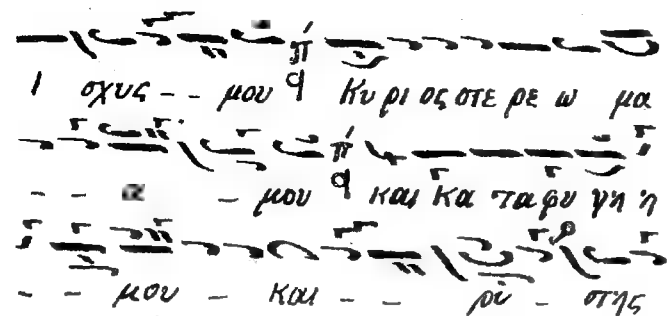 Ι σχυς - - μου π ϥ Κυ ρι ος στε ρε ω μα
- - α - μου π ϥ και Κα τα φυ γη ή
- - μου - και - - ρύ - στης